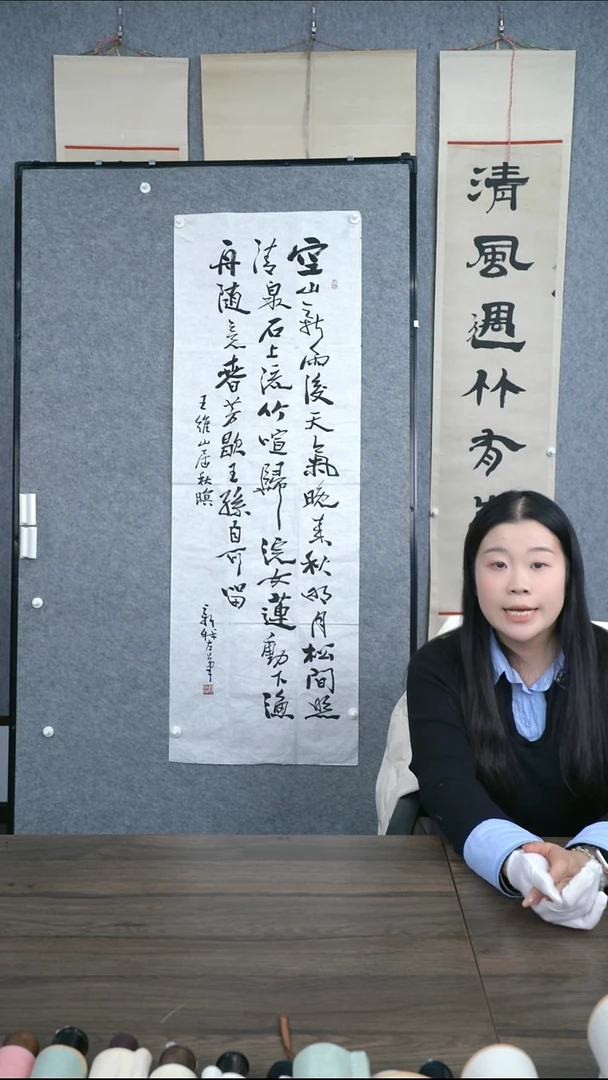 清風過竹有
空山新雨後天氣晚来秋明月松間照
清泉石上流竹喧歸浣女蓮動下漁
舟隨意春芳歇王孫自可留
王維山居秋暝